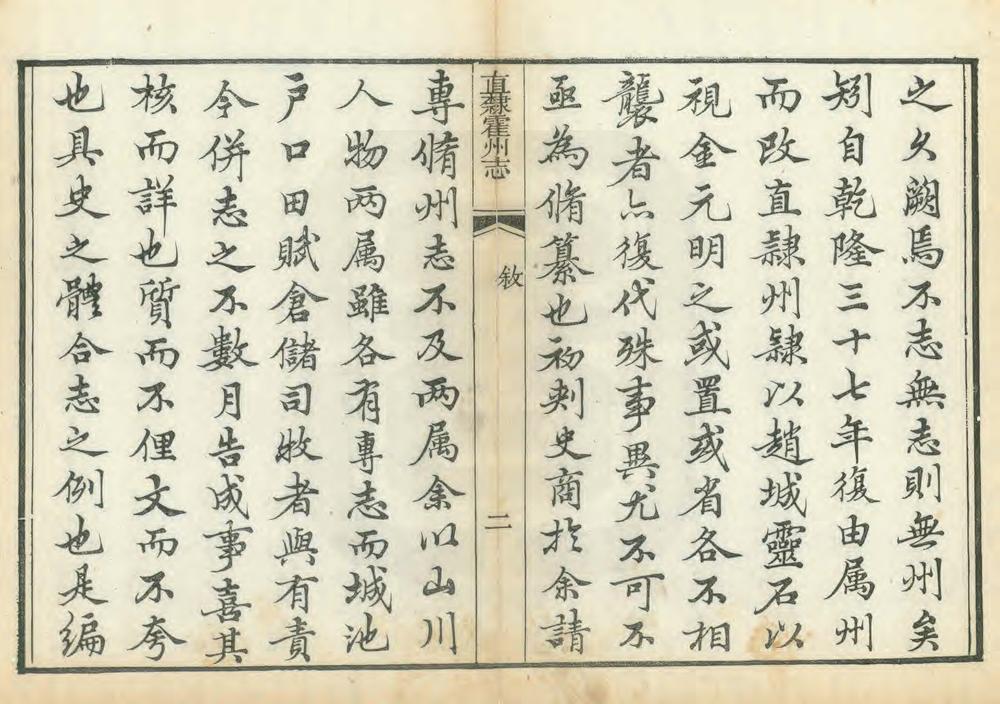 之久闕焉不志無志則無州矣
矧自乾隆三十七年復由属州
而改直隷州隷以趙城靈石以
視金元明之或置或省各不相
襲者亦復代殊事異尤不可不
亟為脩纂也初刺史商扵余請
直隸霍州志
敘
二
專脩州志不及两属余以山川
人物两属雖各有專志而城池
户口田賦倉儲司牧者與有責
今併志之不數月告成事喜其
核而詳也質而不俚文而不夸
也具史之體合志之例也是编